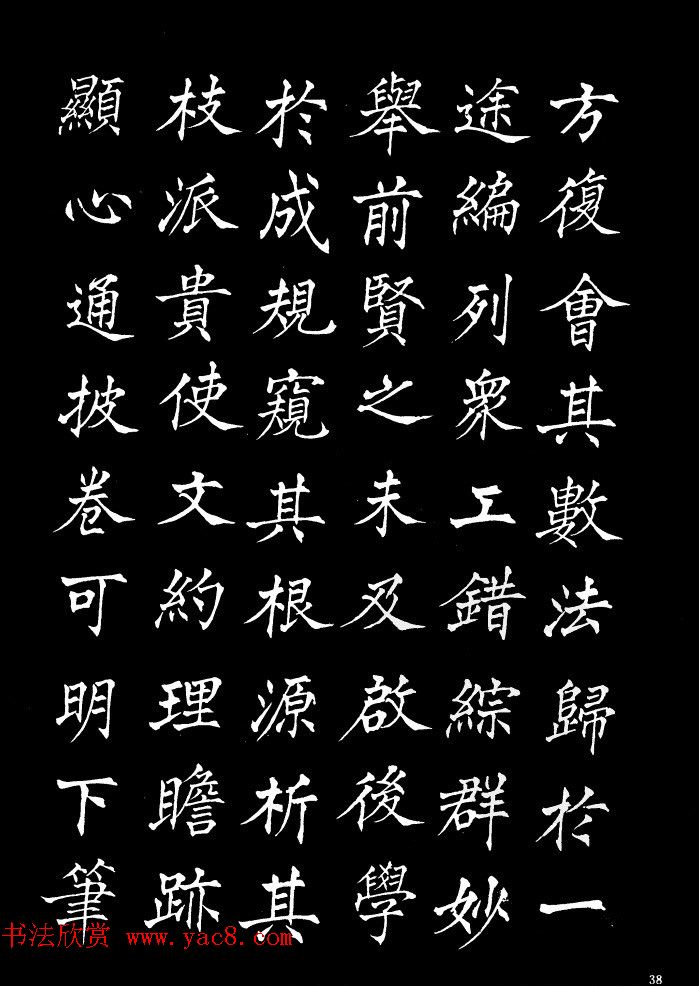 方復會其數法歸於一
途編列衆工錯綜群妙
舉前賢之未及啟後學
於成規窺其根源析其
枝派貴使文約理贍跡
顯心通披卷可明下筆
书法欣赏 www.yac8.com
38